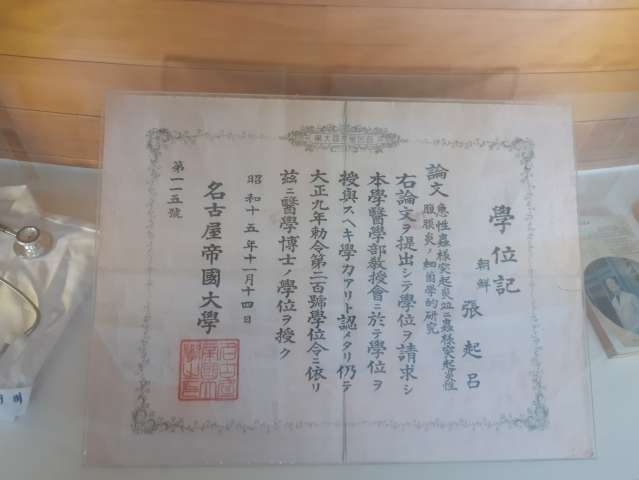 學位記
朝鮮
張起呂
論文 急性蟲様突起炎竝ニ蟲様突起炎性
腹膜炎ノ細菌学的研究
右論文ヲ提出シテ學位ヲ請求シ
本學醫學部教授會ニ於テ學位ヲ
授與スヘキ學力アリト認メタリ仍テ
大正九年勅令第二百號學位令ニ依リ
茲ニ醫學博士ノ學位ヲ授ク
昭和十五年十一月十四日
名古屋帝國大學
第一一五號